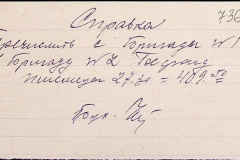 736
Справка
Перечислить с бригады №1
Бригаду №2
пшеницы 27 = 409.50
Бух.